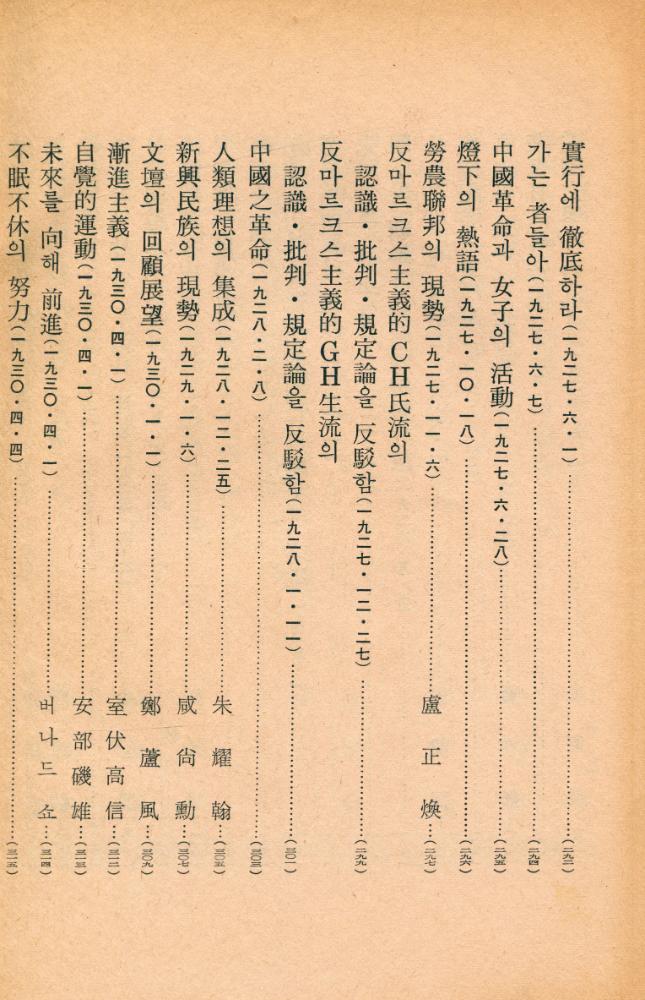 實行에 徹底하라(一九二七·六·一)……(二九二)
가는 者들아(一九二七·六·七)……(二九四)
中國革命과 女子의 活動(一九二七·六·二八)……(二九五)
燈下의 熱語(一九二七·一〇·一八)……(二九六)
勞農聯邦의 現勢(一九二七·一一·六)……盧正煥……(二九七)
反마르크스主義的CH氏流의
認識·批判·規定論을 反駁함(一九二七·一二·二七)……(二九九)
反마르크스主義的GH生流의
認識·批判·規定論을 反駁함(一九二八·一·一一)……(三〇一)
中國之革命(一九二八·二·八)……(三〇三)
人類理想의 集成(一九二八·一二·二五)……朱耀翰……(三〇五)
新興民族의 現勢(一九二九·一·六)……咸尙勳……(三〇七)
文壇의 回顧展望(一九三〇·一·一)……鄭蘆風……(三〇九)
漸進主義(一九三〇·四·一)……室伏高信……(三一二)
自覺的運動(一九三〇·四·一)……安部磯雄……(三一三)
未來를 向해 前進(一九三〇·四·一)……버나드쇼……(三一四)
不眠不休의 努力(一九三〇·四·四)……(三一五)